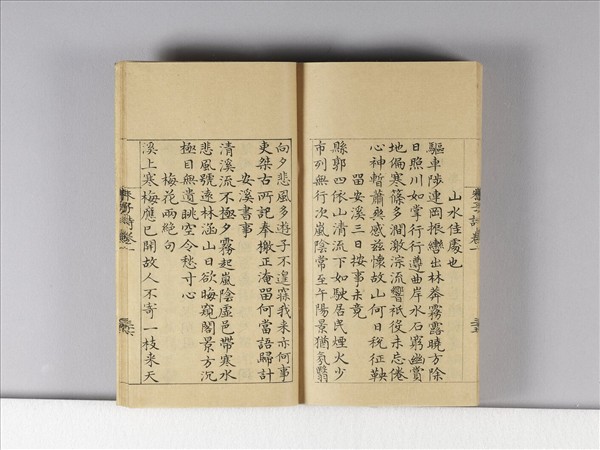 山水佳處也
驅車陟連岡振轡出林莽霧露曉方除
日照川如掌行行遵曲岸水石窮幽賞
地偏寒篠多澗激淙流響祗役未忘倦
心神暫蕭爽感茲懷故山何日稅征鞅
畱安溪三日按事未竟
縣郭四依山清流下如駛居民煙火少
市列無行次嵐陰常至午陽景猶氛翳
向夕悲風多遊子不遑寐我来亦何事
吏桀古所記奉檄正淹畱何當語歸計
安溪書事
清溪流不極夕霧起嵐陰虛邑帶寒水
悲風號遠林涵山日欲晦窺閣景方沉
極目無遺眺空令愁寸心
梅花兩絕句
溪上寒梅應已開故人不寄一枝来天